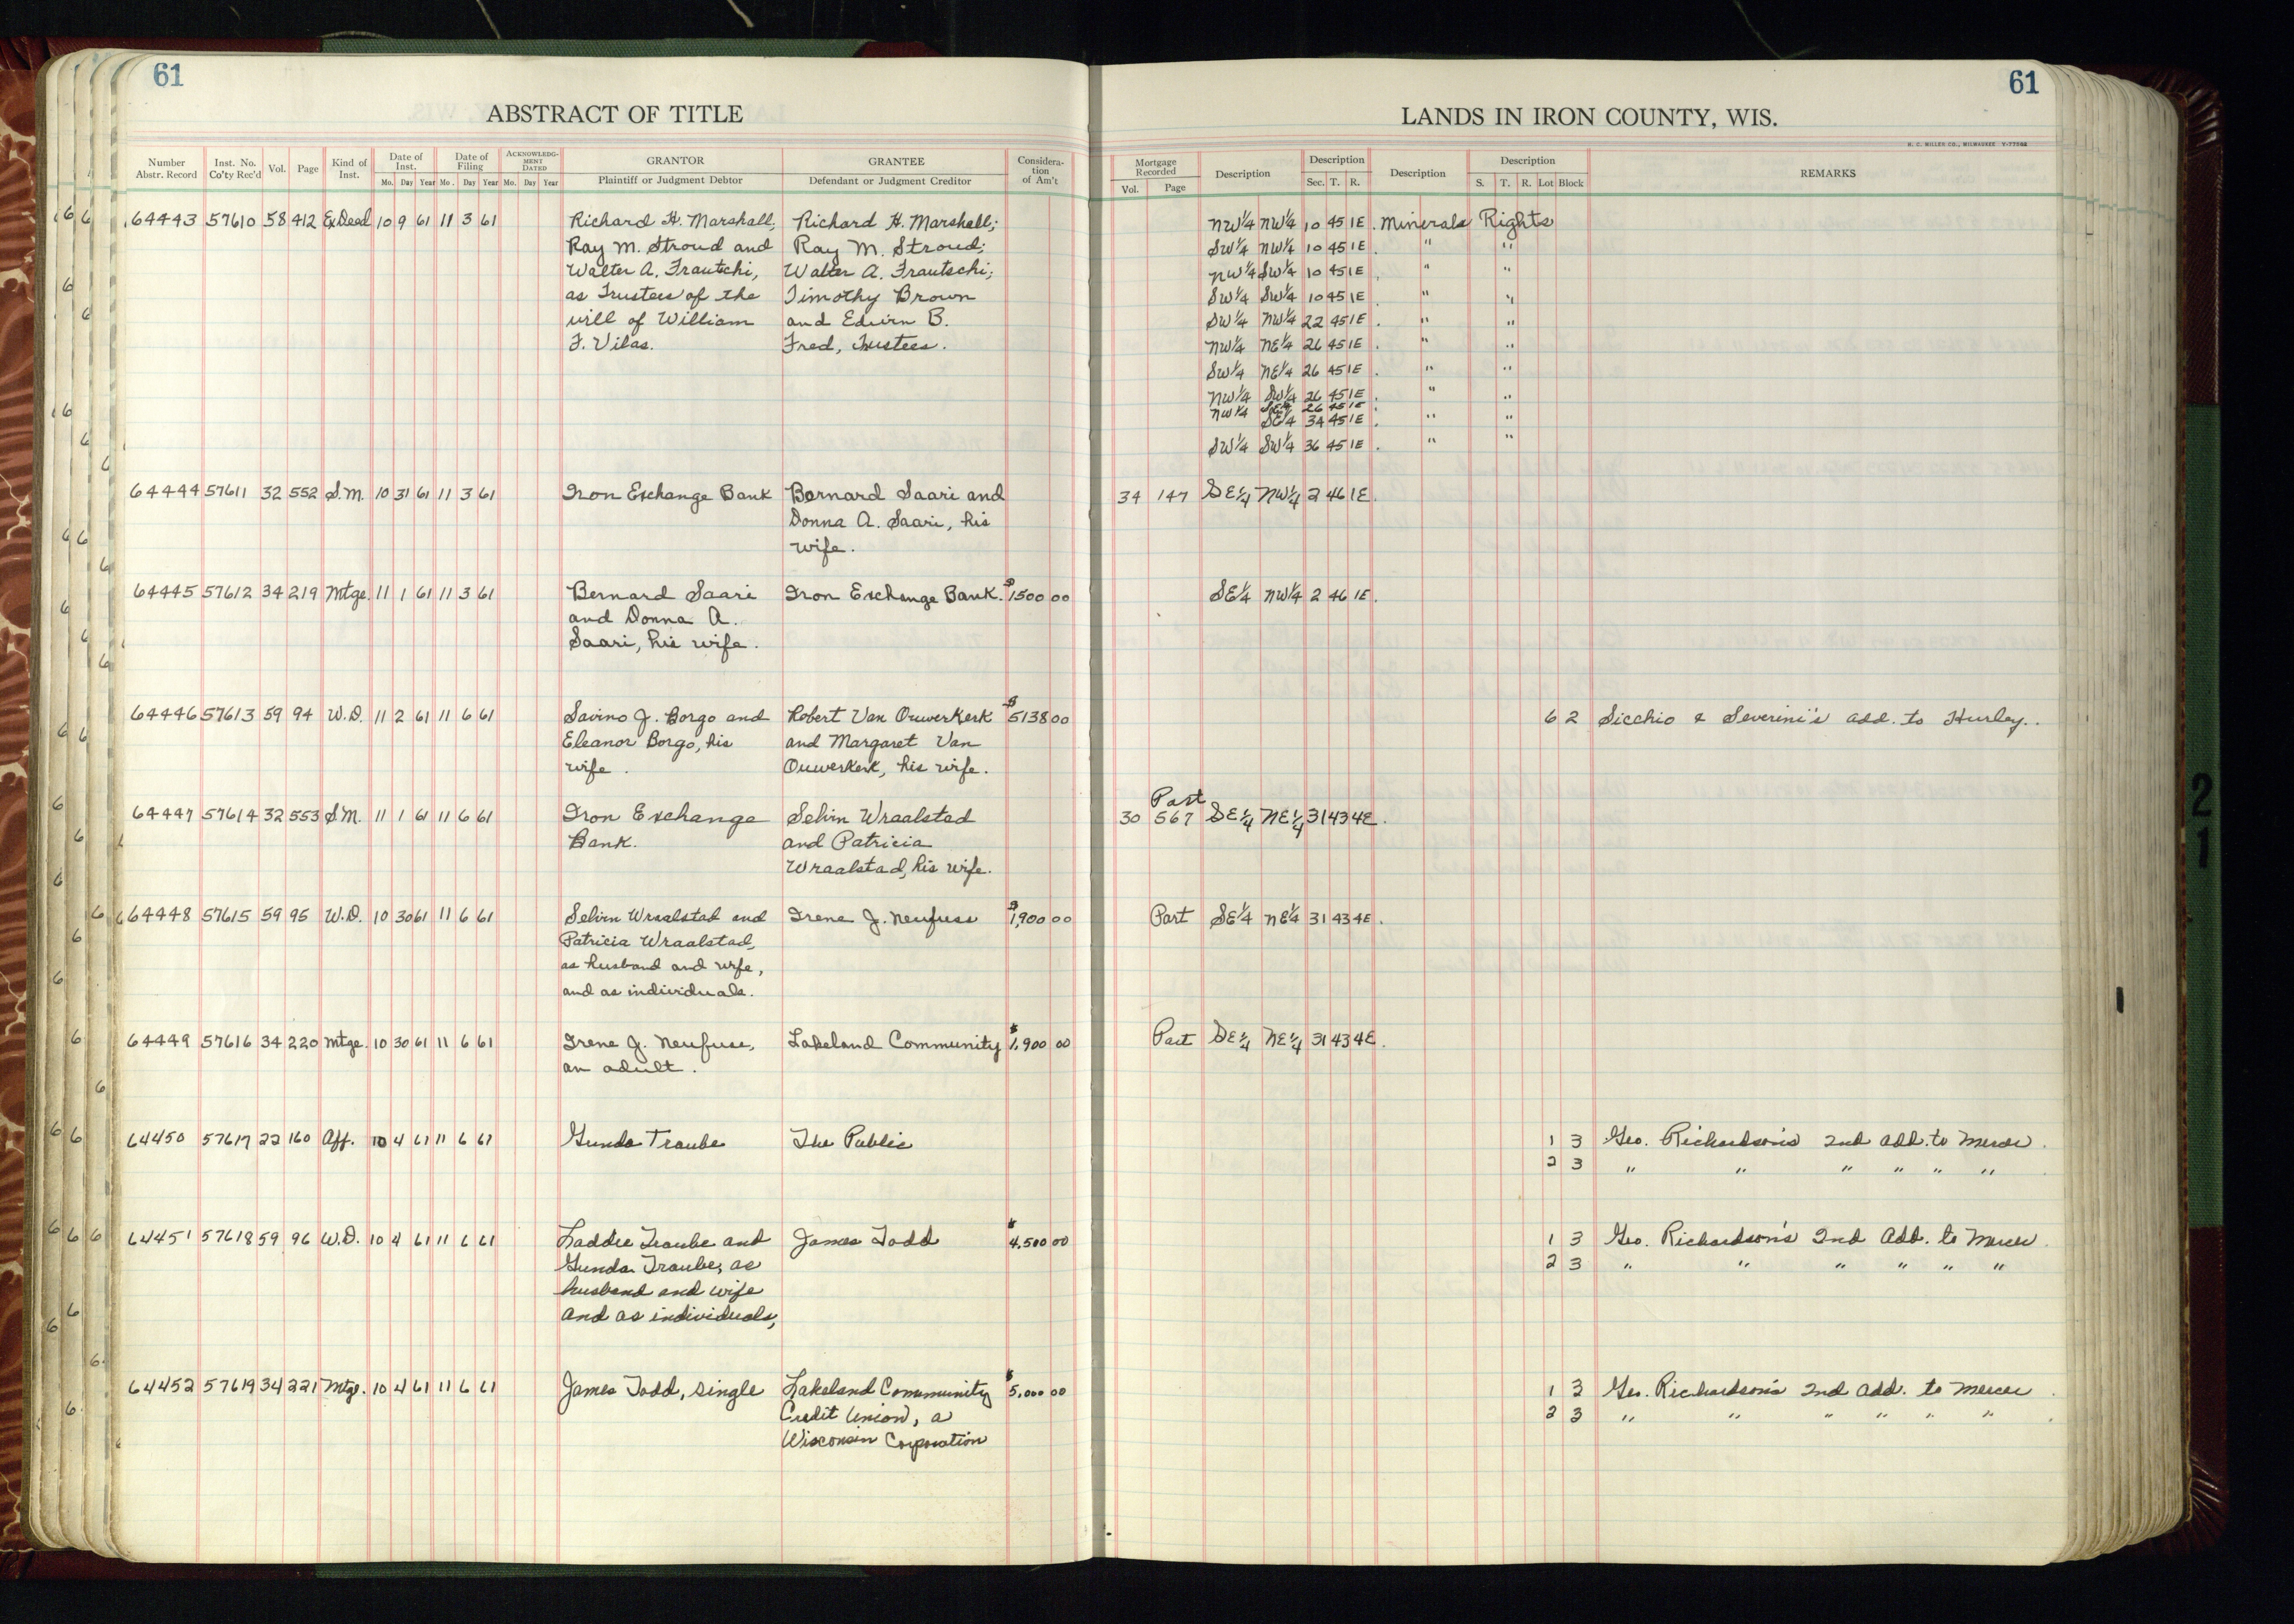 61
ABSTRACT OF TITLE
Number Abstr. Record Inst. No. Co'ty Rec'd Vol. Page Kind of Inst. Date of Inst. Mo. Day Year Date of Filing Mo. Day Year ACKNOWLEDGMENT DATED Mo. Day Year GRANTOR Plaintiff or Judgment Debtor GRANTEE Defendant or Judgment Creditor Consideration of Am't
64443 57610 58 412 Ex.Deed 10 9 61 11 3 61 Richard H. Marshall; Richard H. Marshall;
Ray M. Stroud and Ray M. Stroud;
Walter A. Frautchi, Walter A. Frautschi;
as Trustees of the Timothy Brown
will of William and Edwin B.
F. Vilas. Fred, Trustees.
64444 57611 32 552 S.M. 10 31 61 11 3 61 Iron Exchange Bank Bernard Saari and
Donna A. Saari, his
wife.
64445 57612 34 219 Mtge. 11 1 61 11 3 61 Bernard Saari Iron Exchange Bank. $1500 00
and Donna A.
Saari, his wife.
64446 57613 59 94 W.D. 11 2 61 11 6 61 Savino J. Borgo and Robert Van Ouwerkerk $5138 00
Eleanor Borgo, his and Margaret Van
wife. Ouwerkerk, his wife.
64447 57614 32 553 S.M. 11 1 61 11 6 61 Iron Exchange Selvin Wraalstad
Bank. and Patricia
Wraalstad, his wife.
64448 57615 59 95 W.D. 10 30 61 11 6 61 Selvin Wraalstad and Irene J. Neufuss $1,900 00
Patricia Wraalstad,
as husband and wife,
and as individuals.
64449 57616 34 220 Mtge. 10 30 61 11 6 61 Irene J. Neufuss, Lakeland Community $1,900 00
an adult.
64450 57617 22 160 Aff. 10 4 61 11 6 61 Gunda Traube The Public
64451 57618 59 96 W.D. 10 4 61 11 6 61 Laddie Traube and James Todd $4,500 00
Gunda Traube, as
husband and wife
and as individuals,
64452 57619 34 221 Mtge. 10 4 61 11 6 61 James Todd, single Lakeland Community $5,000 00
Credit Union, a
Wisconsin Corporation
61
LANDS IN IRON COUNTY, WIS.
H. C. MILLER CO., MILWAUKEE
Mortgage Recorded Vol. Page Description Description Sec. T. R. Description Description S. T. R. Lot Block REMARKS
NW¼ NW¼ 10 45 1E. Minerals Rights
SW¼ NW¼ 10 45 1E. " "
NW¼ SW¼ 10 45 1E. " "
SW¼ SW¼ 10 45 1E. " "
SW¼ NW¼ 22 45 1E. " "
NW¼ NE¼ 26 45 1E. " "
SW¼ NE¼ 26 45 1E. " "
NW¼ SW¼ 26 45 1E. " "
NW¼ SE¼ 26 45 1E.
SE¼ 34 45 1E. " "
SW¼ SW¼ 36 45 1E. " "
34 147 SE¼ NW¼ 2 46 1E.
SE¼ NW¼ 2 46 1E.
6 2 Sicchio & Severini's add. to Hurley.
Part
30 567 SE¼ NE¼ 31 43 4E.
Part SE¼ NE¼ 31 43 4E.
Part SE¼ NE¼ 31 43 4E.
1 3 Geo. Richardson's 2nd add. to Mercer.
2 3 " " " " " "
1 3 Geo. Richardson's 2nd Add. to Mercer.
2 3 " " " " " "
1 3 Geo. Richardson's 2nd add. to Mercer.
2 3 " " " " " "
2
1